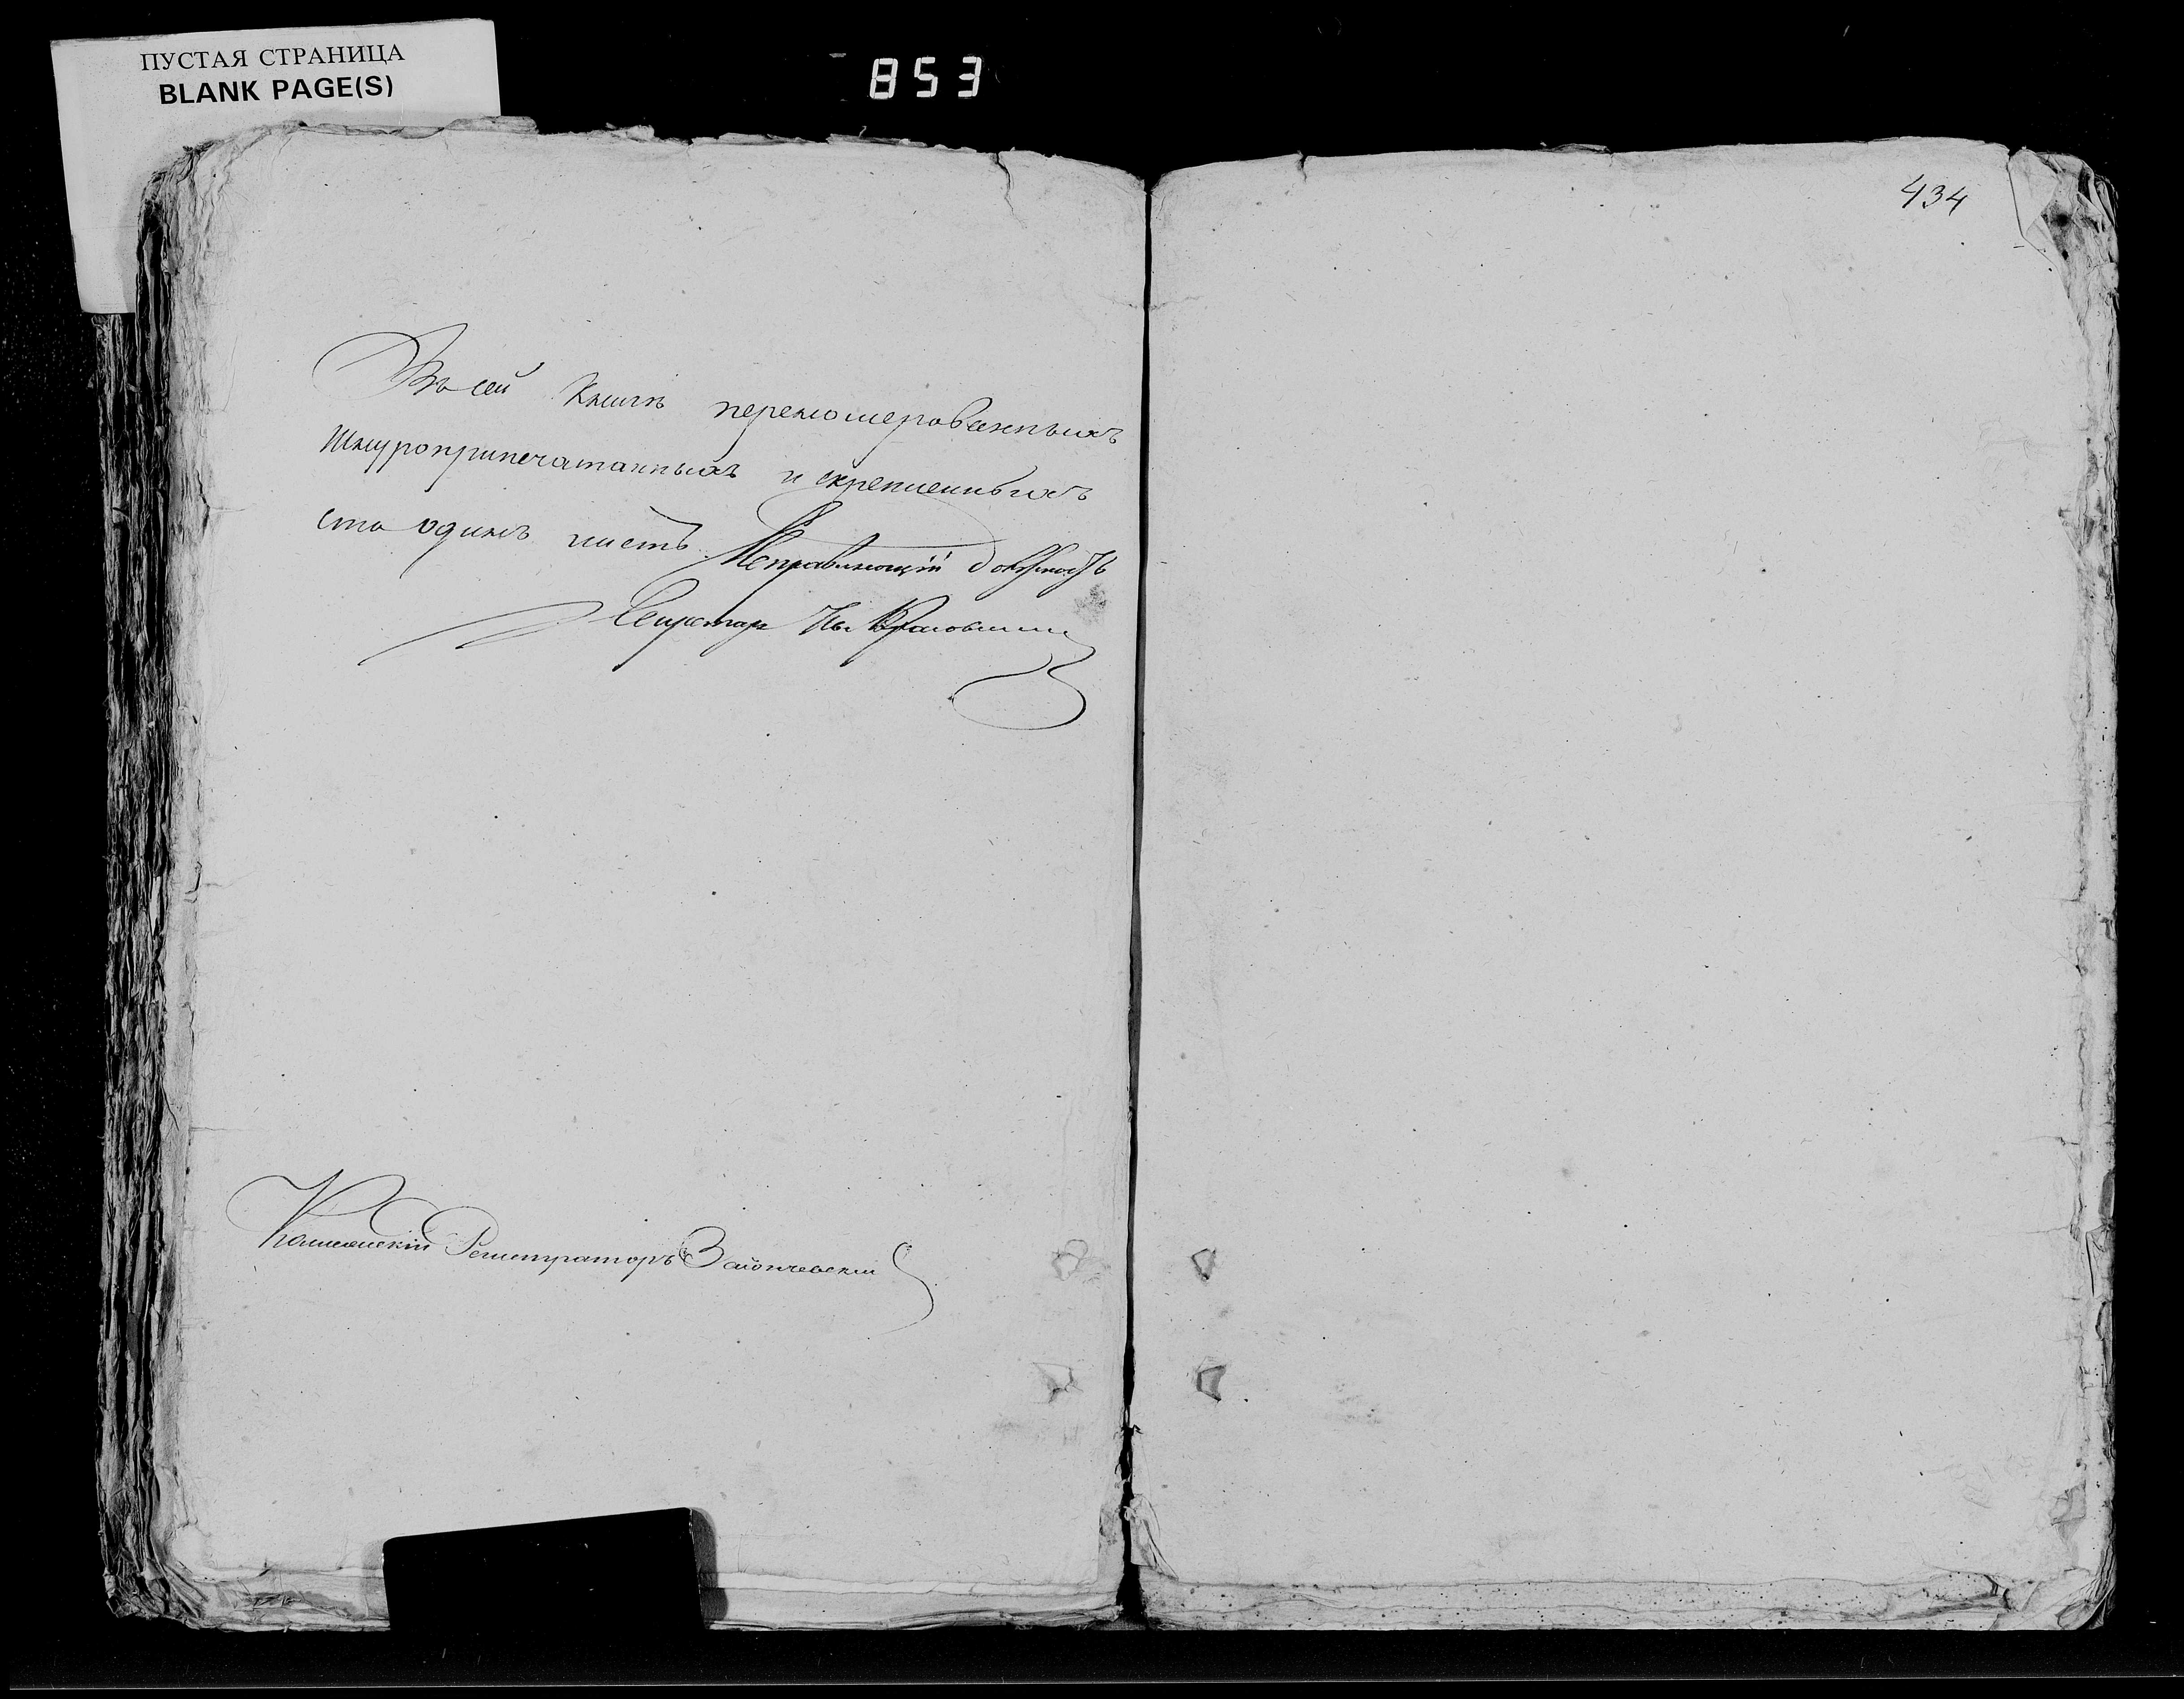 ПУСТАЯ СТРАНИЦА
BLANK PAGE(S)
853
434
Въ сей Книгѣ перенумерованныхъ
Шнуроприпечатанныхъ и скрепленныхъ
сто одинъ листъ. Исправляющій должность
Секретаря Ив.
Коллежскій Регистраторъ Заіончевскій